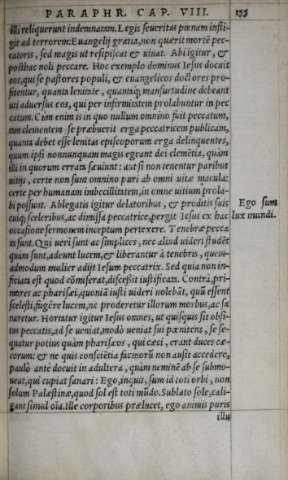 PARAPHR. CAP. VIII. 155
illi reliquerunt indemnatam. Legis seueritas pœnam infli-
git ad terrorem: Euangelij gratia, non quærit mortē pec-
catoris, sed magis ut resipiscat & uiuat. Abi igitur, &
posthac noli peccare. Hoc exemplo dominus Iesus docuit
eos, qui se pastores populi, & euangelicos doctores pro-
fitentur, quanta lenitate, quantaq; mansuetudine debeant
uti aduersus eos, qui per infirmitatem prolabuntur in pec
catum. Cùm enim is in quo nullum omnino fuit peccatum,
tam clementem se præbuerit erga peccatricem publicam,
quanta debet esse lenitas episcoporum erga delinquentes,
quum ipsi nonnunquam magis egeant dei clemētia, quàm
illi in quorum errata sæuiunt: aut si non tenentur paribus
uitijs, certe non sunt omnino puri ab omni uitæ macula:
certe per humanam imbecillitatem, in omne uitium prola-
bi possunt. Ablegatis igitur delatoribus, & proditis suis
cuiq; sceleribus, ac dimissa peccatrice, pergit Iesus ex hac
occasione sermonem inceptum pertexere. Tenebræ pecca
ta sunt. Qui ueri sunt ac simplices, nec aliud uideri studēt
quàm sunt, adeunt lucem, & liberantur à tenebris, quem-
admodum mulier adijt Iesum peccatrix. Sed quia non in-
ficiata est quod cōmiserat, discessit iustificata. Contrà, pri-
mores ac pharisæi, quoniā iusti uideri uolebāt, quū essent
scelesti, fugêre lucem, nc proderetur illorum morbus, ac sa
naretur. Hortatur igitur Iesus omnes, ut quisquis sit obsi-
tus peccatis, ad se ueniat, modò ueniat sui pœnitens, & se-
quatur potius quàm pharisæos, qui cæci, erant duces cæ-
corum: & ne quis conscientia facinorū non ausit accedere,
paulò ante docuit in adultera, quàm neminē ab se submo-
ueat, qui cupiat sanari: Ego, inquit, sum id toti orbi, non
solum Palæstinæ, quod sol est toti mūdo. Sublato sole, cali-
gant simul oīa. Ille corporibus prælucet, ego animis puris
illu
Ego sum
lux mundi.